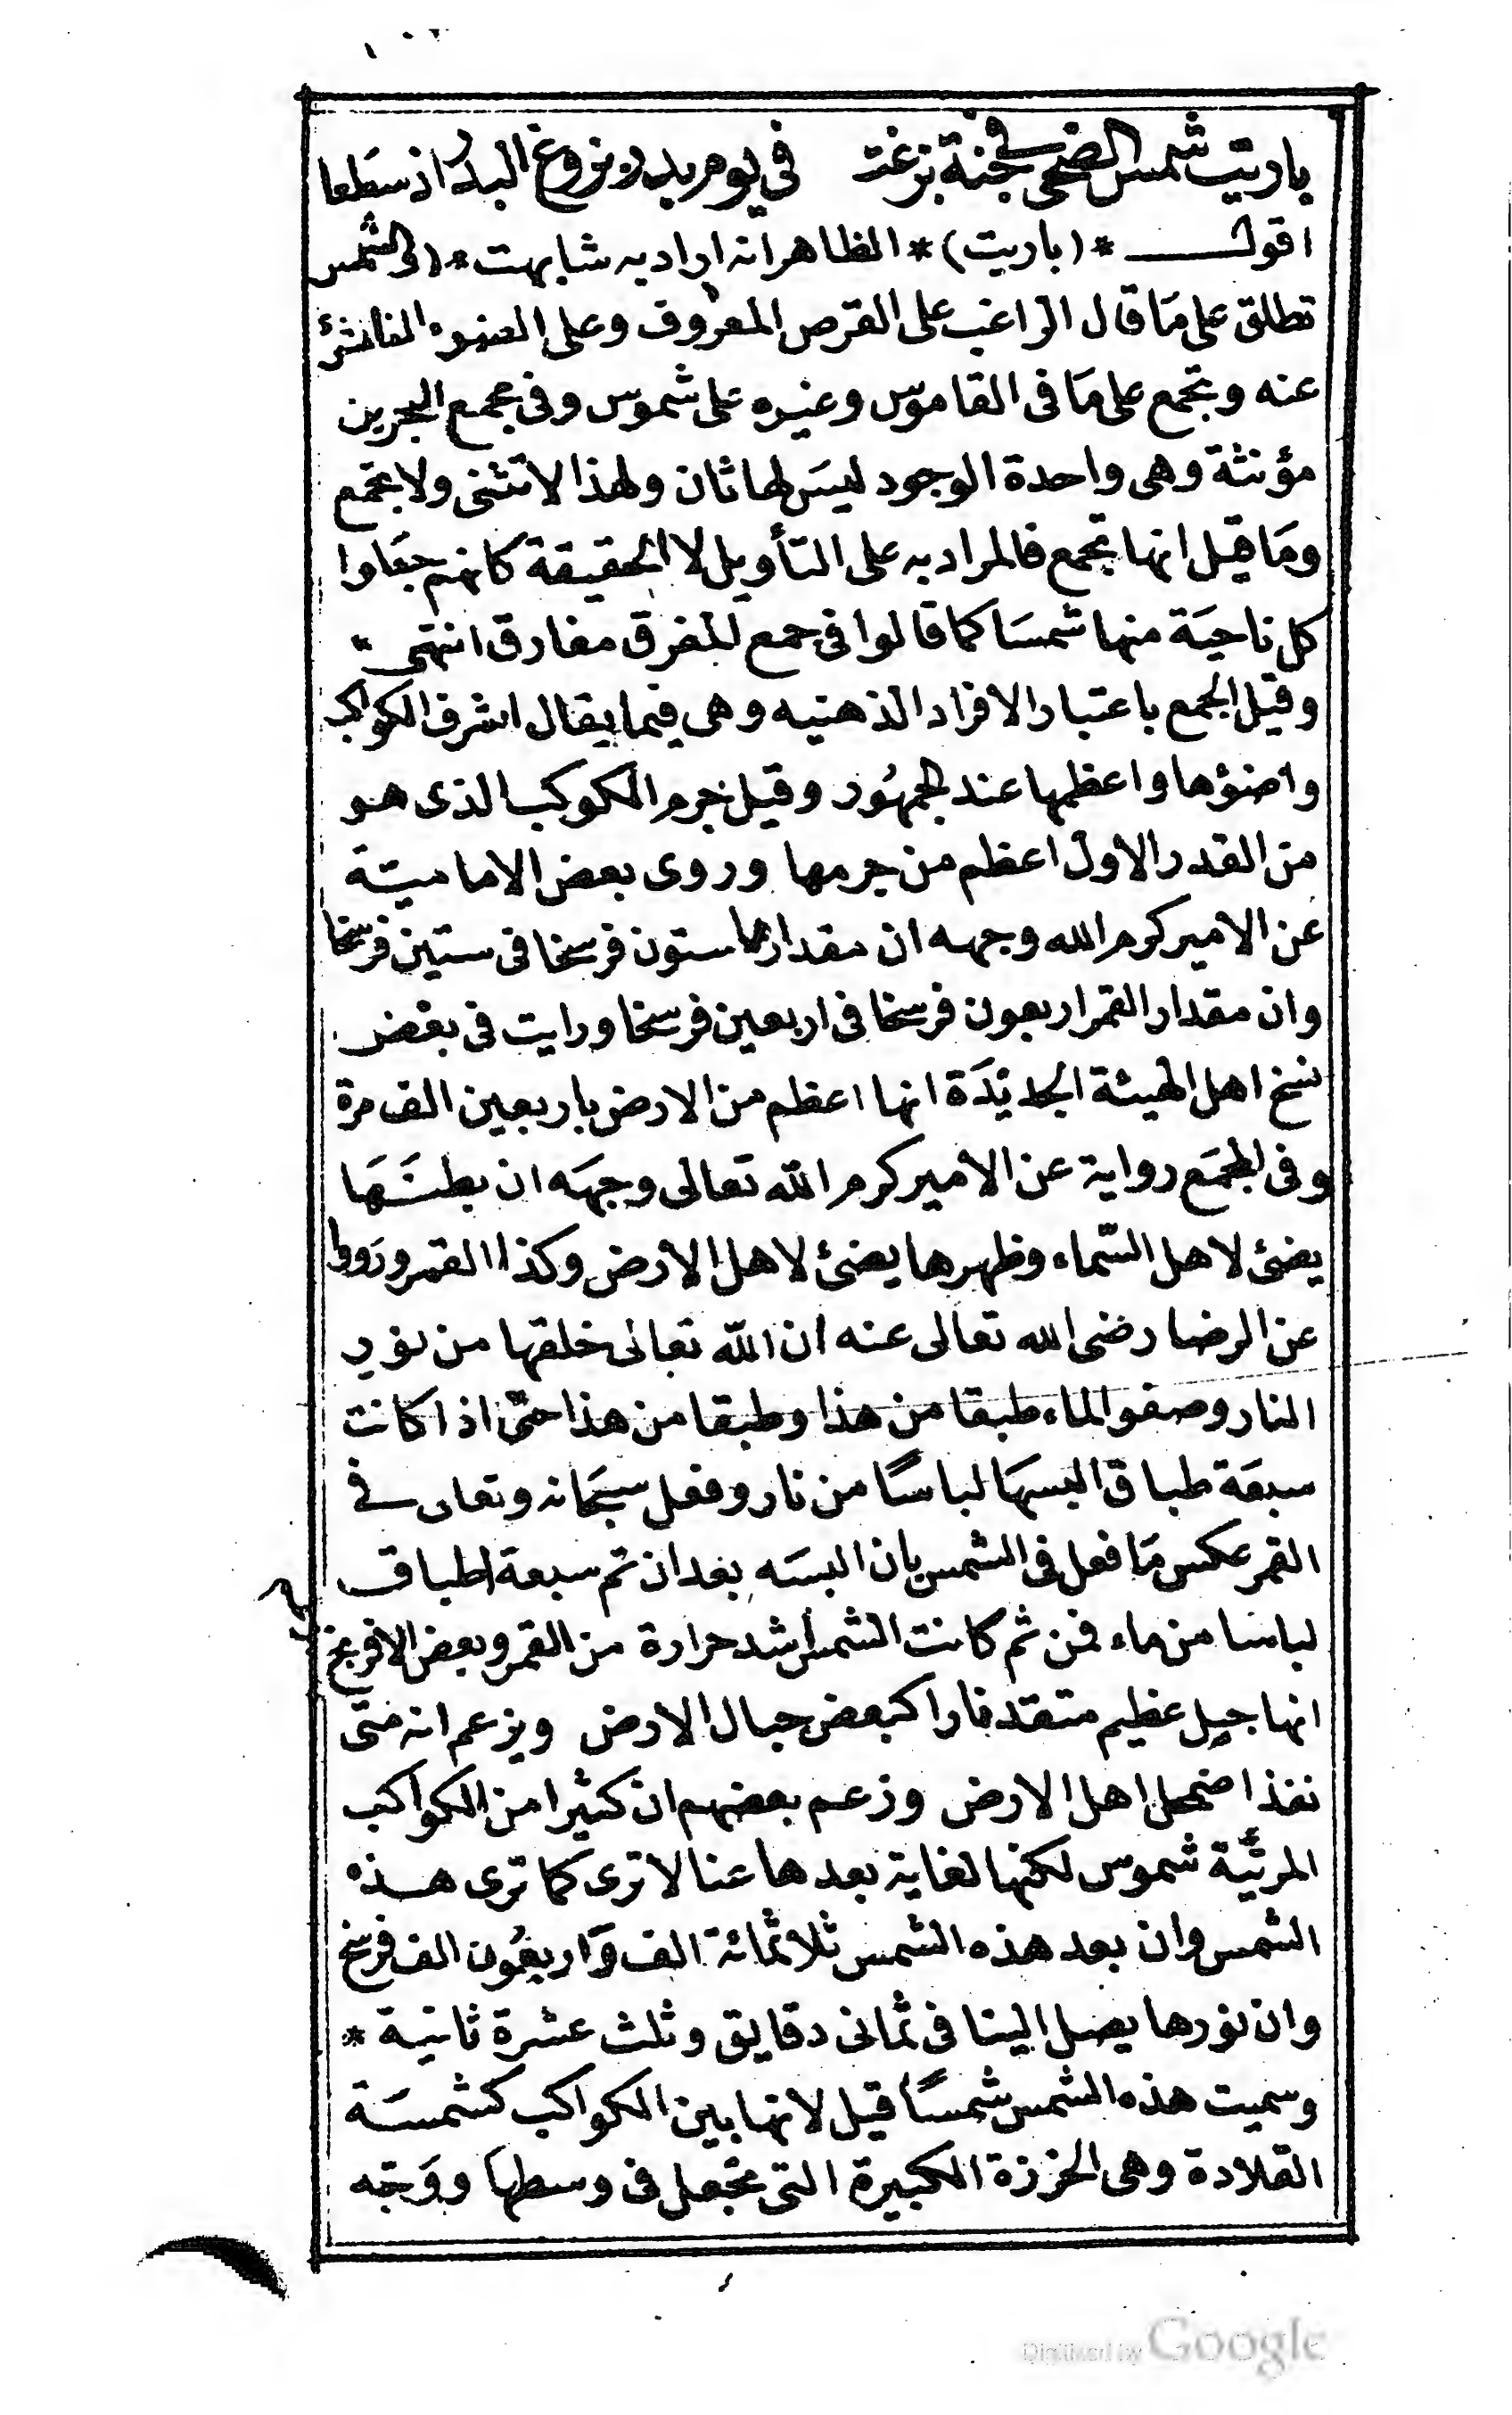 باريت شمس الضحى في جنة بزغت في يوم بدر بزوغ البدر اذ سطعا
اقول * (باريت) * الظاهر انه اراد به شابهت * (والشمس
تطلق على مَا قال الراغب على القرص المعروف وعلى الضوء المنتشر
عنه وتجمع على مَا فى القاموس وغيره على شموس وفى مجمع البحرين
مؤنثة وهى واحدة الوجود ليسَ لها ثان ولهذا لا تثنى ولا تجمع
ومَا قيل انها تجمع فالمراد به على التأويل لا الحقيقة كانهم جعَلوا
كل ناحيَة منها شمسَا كما قالوا فى جمع المفرق مفارق انتهى
وقيل الجمع باعتبار الافراد الذهنيه وهى فيما يقال اشرف الكواكب
واضؤها واعظمها عند الجمهُور وقيل جرم الكوكب الذى هو
من القدر الاول اعظم من جرمها وروى بعض الاماميّة
عن الامير كرم الله وجهه ان مقدارها ستون فرسخا فى ستين فرسخا
وان مقدار القمر اربعون فرسخا فى اربعين فرسخا ورايت فى بعض
نسخ اهل الهيئة الجديدَة انها اعظم من الارض باربعين الف مرة
وفى المجمَع رواية عن الامير كرم الله تعالى وجهَه ان بطنَهَا
يضئ لاهل السّماء وظهرها يضئ لاهل الارض وكذا القمر ورَووا
عن الرضا رضى الله تعالى عنه ان الله تعالى خلقها من نور
النار وصفو الماء طبقا من هذا وطبقا من هذا حتى اذا كانت
سبعَة طباق البسهَا لباسًا من نار وفعل سبحَانه وتعالى في
القمر عكس مَا فعل فى الشمس بان البسَه بعد ان تم سبعة اطباق
لباسا من ماء فمن ثم كانت الشمس أشد حرارة من القمر وبعض الافرنج
انها جبل عظيم متقد نارا كبعض جبال الارض ويزعم انه متى
نفذ اضمحل اهل الارض وزعم بعضهم ان كثيرا من الكواكب
المرئيّة شموس لكنها لغاية بعدها عنا لا ترى كما ترى هذه
الشمس وان بعد هذه الشمس ثلاثمائة الف وَاربعُون الف فرسخ
وان نورها يصل الينا فى ثمانى دقايق وثلث عشرة ثانية *
وسميت هذه الشمس شمسًا قيل لانها بين الكواكب كشمسَة
القلادة وهى الخرزة الكبيرة التى تجعل فى وسطها ووَجّه
Digitized by Google